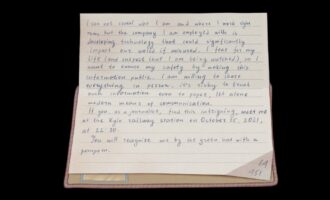 I can not reveal who I am and where I work right
now but the company I am employed with is
developing technology that could significantly
impact our world if misused. I fear for my
life (and suspect that I am being watched), so I
want to ensure my safety by making this
information public. I am willing to share
everything in person, it's risky to trust
such information even to paper, let alone
modern means of communication.
If you, as a journalist, find this intriguing, meet me
at the Kyiv railway station on October 15, 2021,
at 22:30
You will recognize me by the green hat with a
pompom.
151